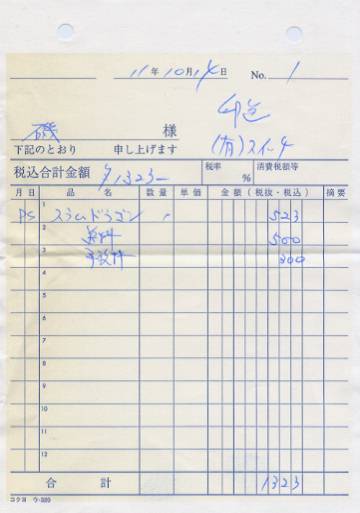 11年10月14日 No. 1
磯 様
下記のとおり 申し上げます
(有)スイート
税込合計金額 ¥1323-
税率 % 消費税額等
月日 品名 数量 単価 金額(税抜・税込) 摘要
1 PS スラムドラゴン 1 523
2 送料 500
3 手数料 300
4
5
6
7
8
9
10
11
12
合計 1323
コクヨ ウ-320